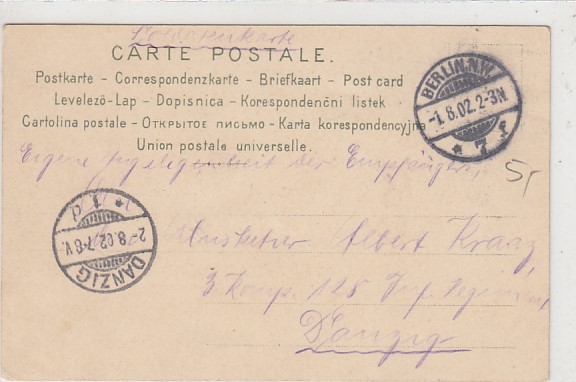 Soldatenkarte
CARTE POSTALE.
Postkarte - Correspondenzkarte - Briefkaart - Post card
Levelező-Lap - Dopisnica - Korespondenční listek
Cartolina postale - Открытое письмо - Karta korespondencyjna
Union postale universelle.
BERLIN.N.W.
-1.8.02.2-3N.
* 7 f
Eigene Angelegenheit des Empfängers,
Musketier Albert Kranz
3 Komp. 128 Inf. Regiment
Danzig
DANZIG
2-8.02.7-8V.
* 1 d
5,-